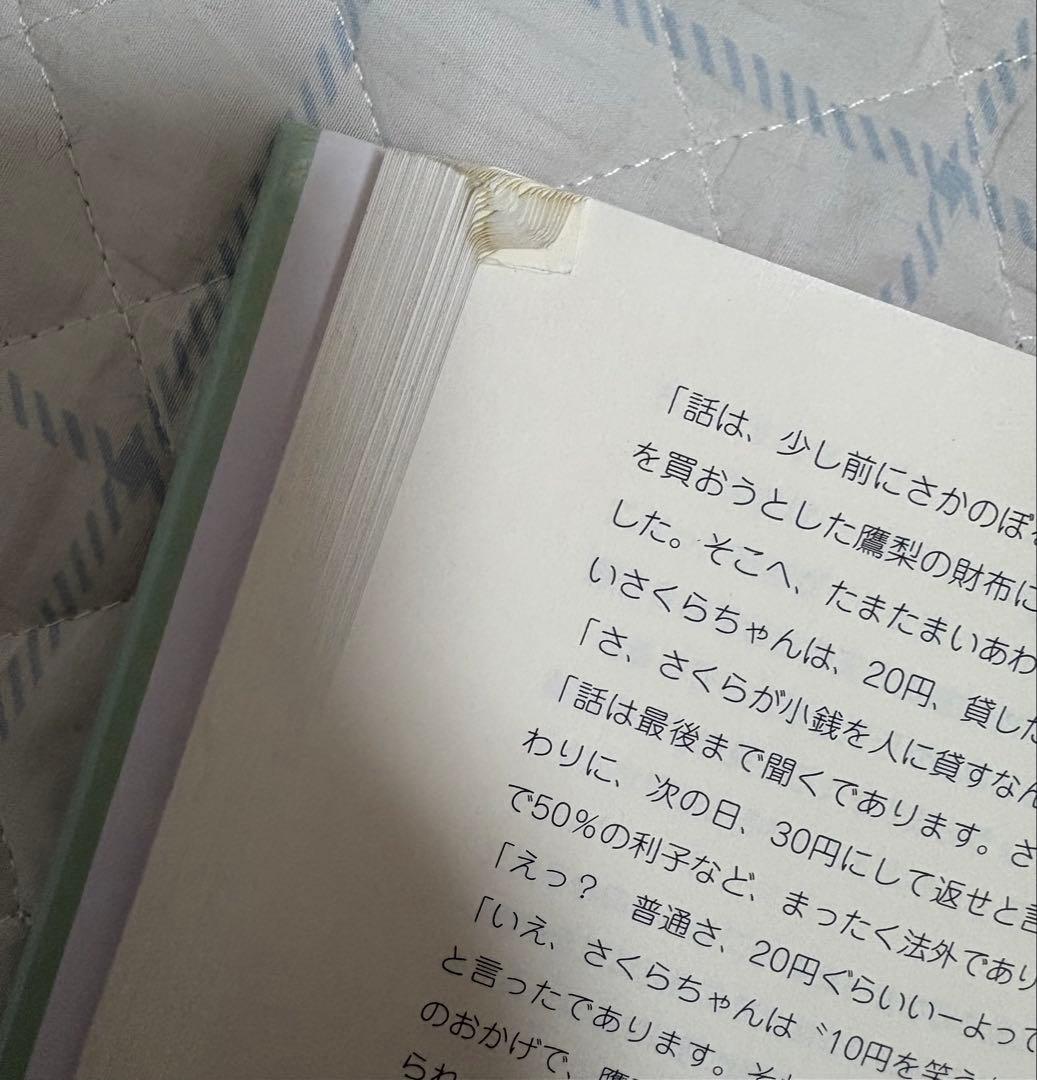 「話は、少し前にさかのぼ
を買おうとした鷹梨の財布に
した。そこへ、たまたまいあわ
いさくらちゃんは、20円、貸した
「さ、さくらが小銭を人に貸すなん
「話は最後まで聞くであります。さ
わりに、次の日、30円にして返せと言
で50%の利子など、まったく法外であり
「えっ？　普通さ、20円ぐらいいーよって
「いえ、さくらちゃんは〝10円を笑う
と言ったであります。そ
のおかげで、鷹
られ